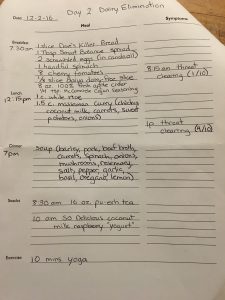 Day 2 Dairy Elimination
Date: 12-2-16
Meal
Symptoms
Breakfast
7:30am
1 slice Dave's Killer Bread
1 Tbsp Smart Balance spread
2 scrambled eggs (in coconut oil)
1 handful spinach
8 cherry tomatoes
1/2 slice Daiya dairy free slice
8 oz. 100% Pink apple cider
1/4 tsp McCormick Cajun Seasoning
8:15 am throat
clearing (1/10)
Lunch
12:15pm
1 c. white rice
1.5 c. massaman curry (chicken,
coconut milk, carrots, sweet
potatoes, onions)
1p throat
clearing (4/10)
Dinner
7pm
Soup (barley, pork, beef broth,
carrots, spinach, onions,
mushrooms, rosemary,
salt, pepper, garlic,
basil, oregano, lemon)
Snacks
8:30 am 16 oz. pu-erh tea
10 am So Delicious coconut
milk raspberry "yogurt"
Exercise
10 mins yoga